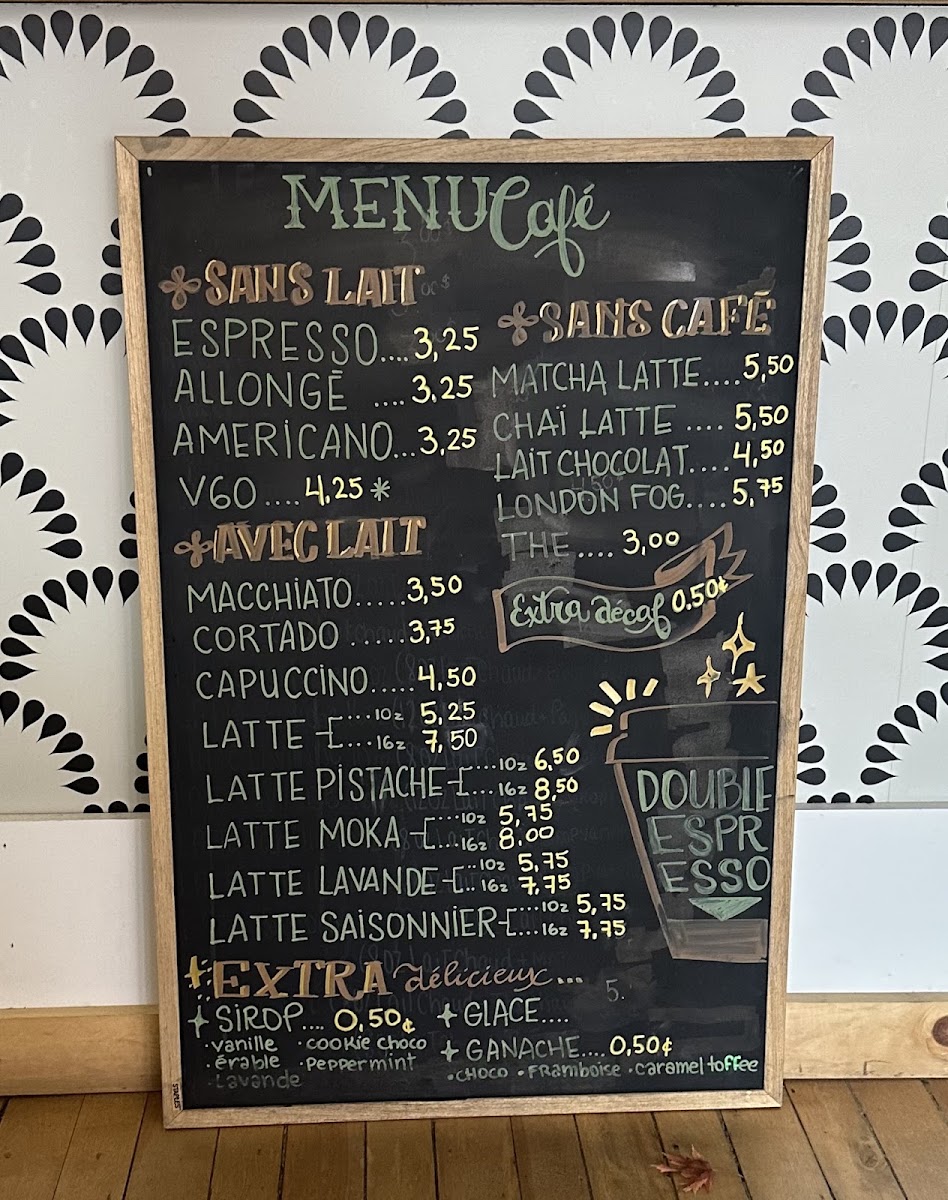 MENU Café
SANS LAIT
ESPRESSO.... 3,25
ALLONGÉ .... 3,25
AMERICANO... 3,25
V60.... 4,25 *
AVEC LAIT
MACCHIATO..... 3,50
CORTADO ..... 3,75
CAPUCCINO..... 4,50
LATTE ....10z 5,25
...16z 7,50
LATTE PISTACHE ....10z 6,50
...16z 8,50
LATTE MOKA ...10z 5,75
...16z 8.00
LATTE LAVANDE ...10z 5,75
...16z 7,75
LATTE SAISONNIER ....10z 5,75
...16z 7,75
SANS CAFÉ
MATCHA LATTE.... 5,50
CHAÏ LATTE .... 5,50
LAIT CHOCOLAT.... 4,50
LONDON FOG.... 5,75
THE.... 3,00
Extra décaf 0.50¢
DOUBLE
ESPR
ESSO
EXTRA délicieux...
SIROP.... 0,50¢
•vanille •cookie choco
•érable •Peppermint
•Lavande
GLACE....
GANACHE.... 0,50¢
•CHOCO •Framboise •caramel toffee
STAPLES